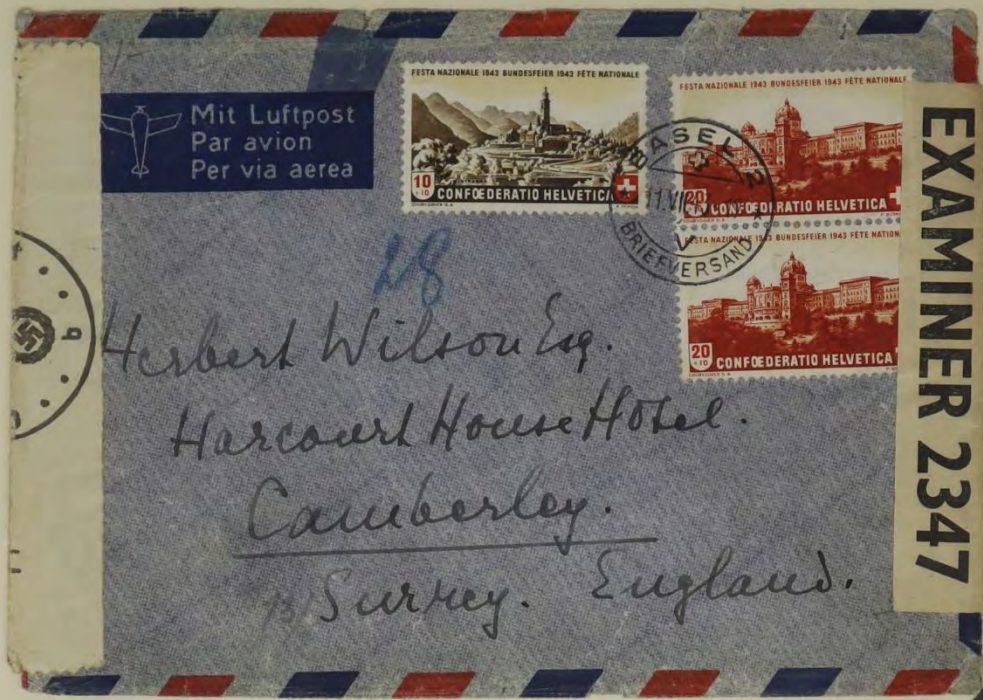 Mit Luftpost
Par avion
Per via aerea
FESTA NAZIONALE 1943 BUNDESFEIER 1943 FÊTE NATIONALE
10
+10
CONFŒDERATIO HELVETICA
FESTA NAZIONALE 1943 BUNDESFEIER 1943 FÊTE NATIONAL
20
CONFŒDERATIO HELVETICA
BASEL 2
BRIEFVERSAND
FESTA NAZIONALE 1943 BUNDESFEIER 1943 FÊTE NATION
20
+10
CONFŒDERATIO HELVETICA
EXAMINER 2347
28
b
Herbert Wilson Esq.
Harcourt House Hotel.
Camberley.
Surrey. England.